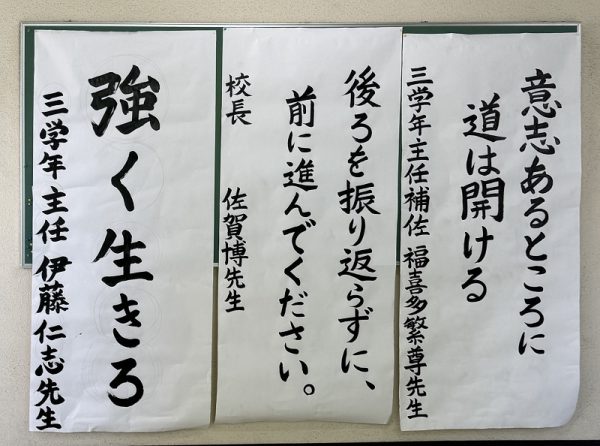 意志あるところに
道は開ける
三学年主任補佐 福喜多繁尊先生
後ろを振り返らずに、
前に進んでください。
校長 佐賀博先生
強く生きろ
三学年主任 伊藤仁志先生